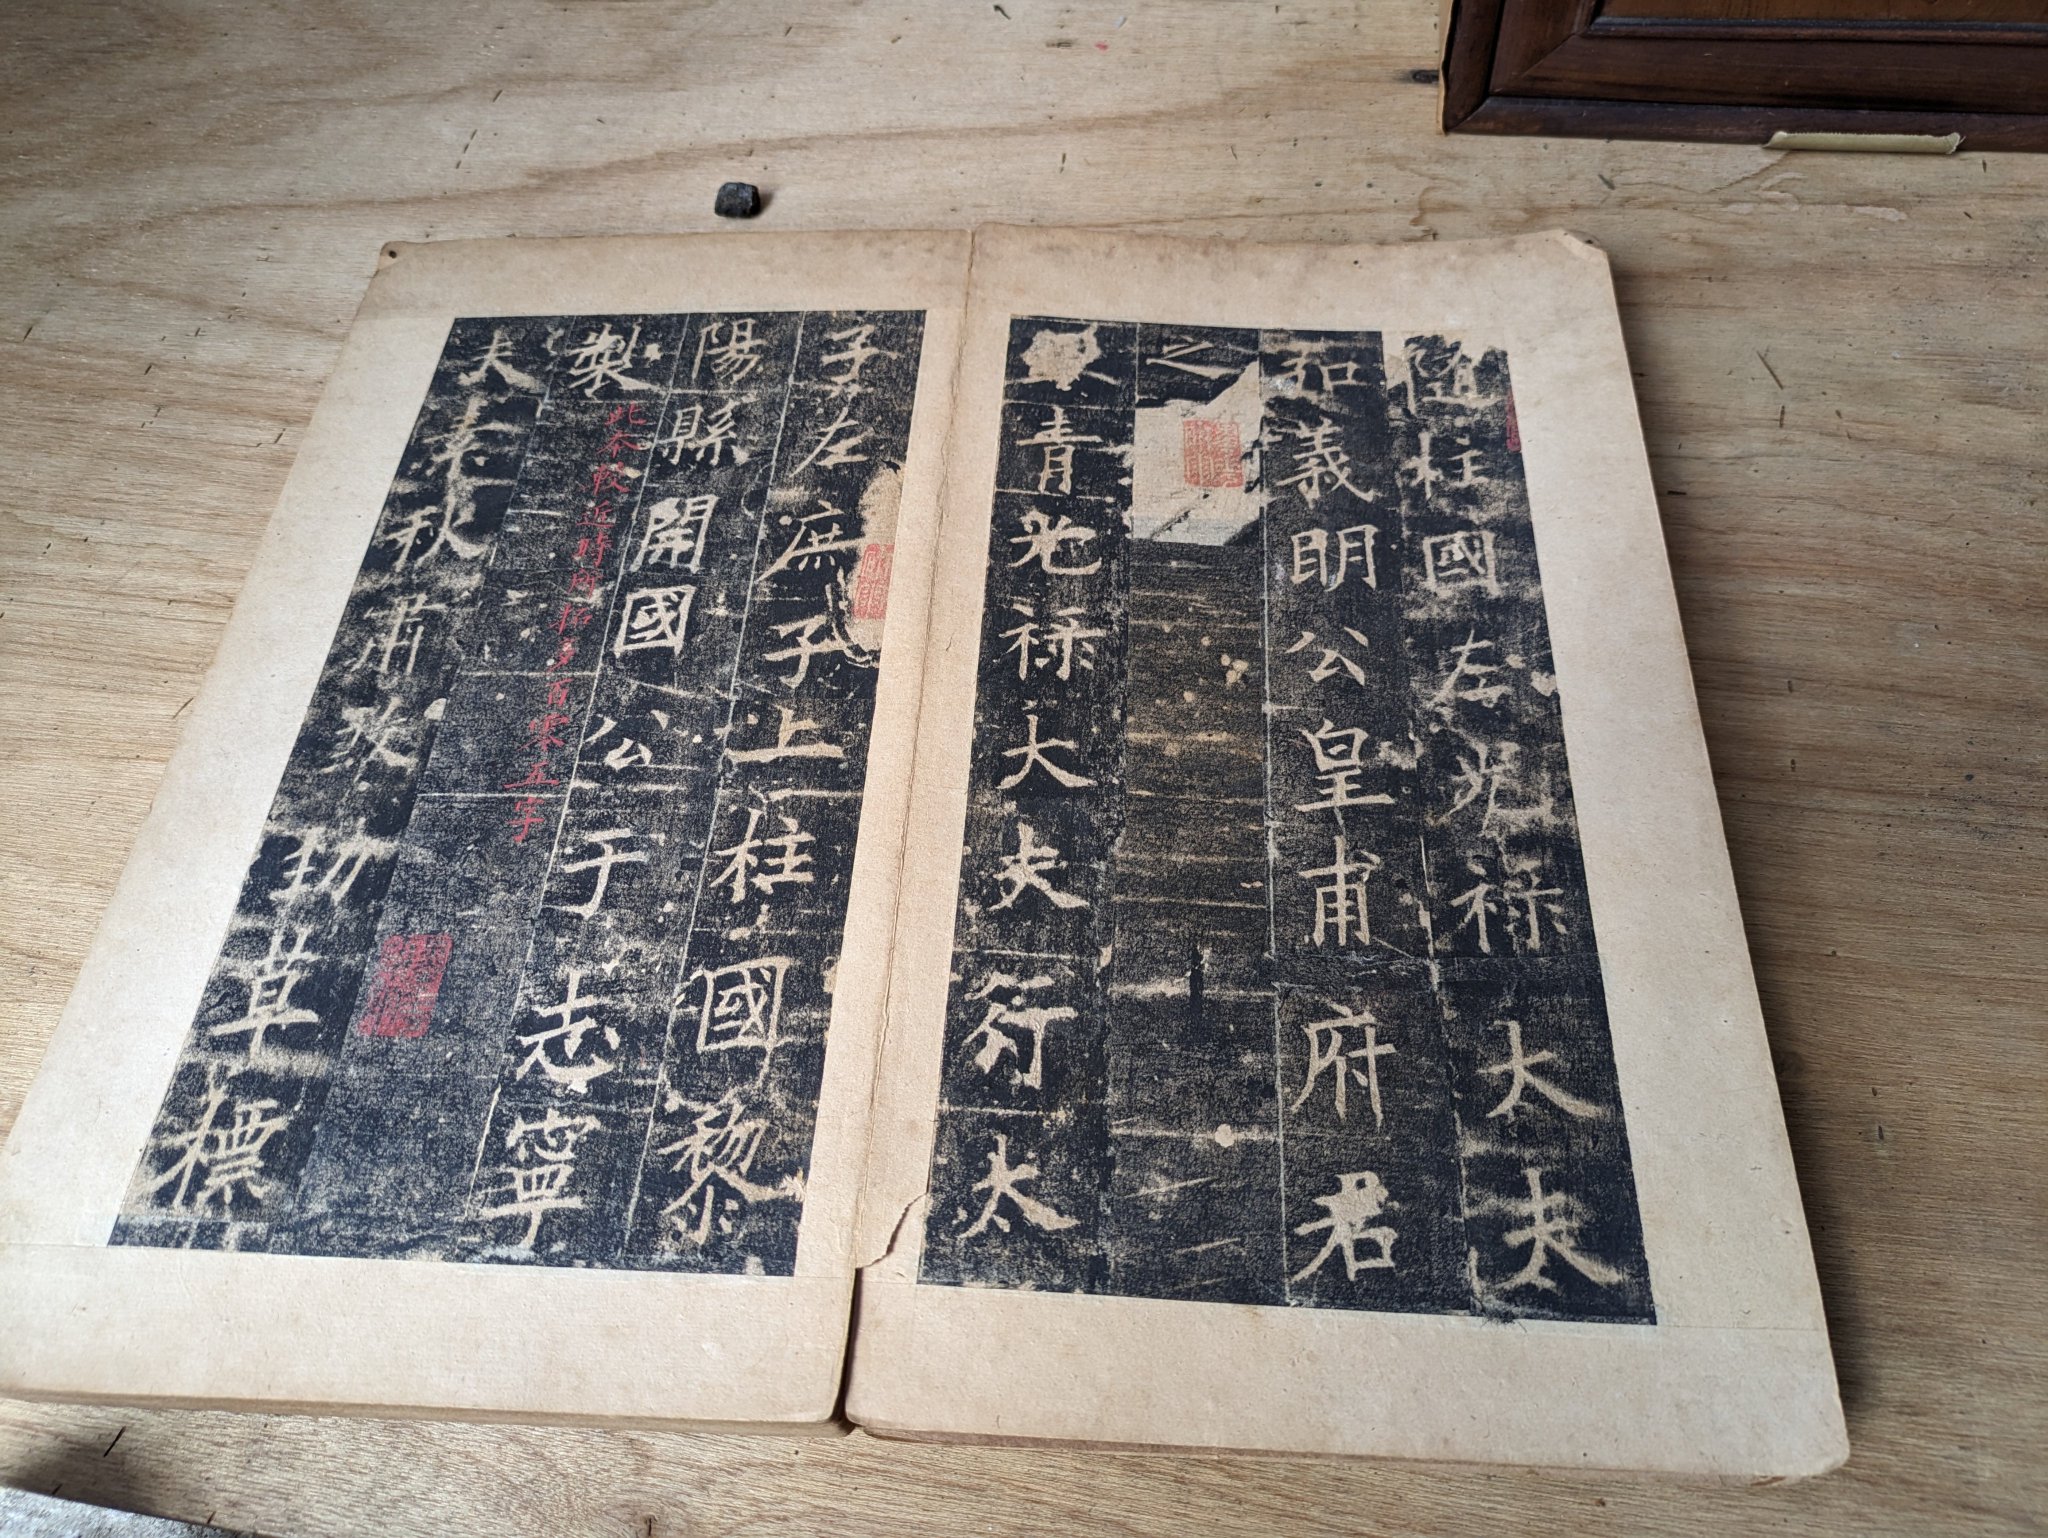 隨柱國左光祿大夫
弘義明公皇甫府君
之
青光祿大夫行太
子左庶子上柱國黎
陽縣開國公于志寧
製
此本較近時所拓多百零五字
夫素秋肅煞勁草標